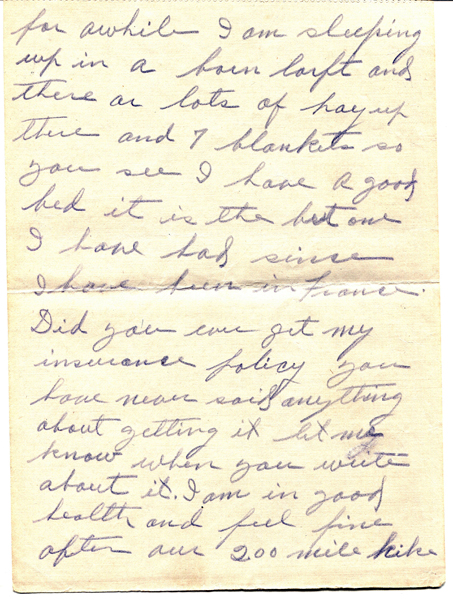 for awhile I am sleeping
up in a barn loft and
there ar lots of hay up
there and 7 blankets so
you see I have a good
bed it is the best one
I have had sinse
I have been in France.
Did you ever get my
insurance policy you
have never said anything
about getting it let me
know when you write
about it. I am in good
health and feel fine
after our 200 mile hike